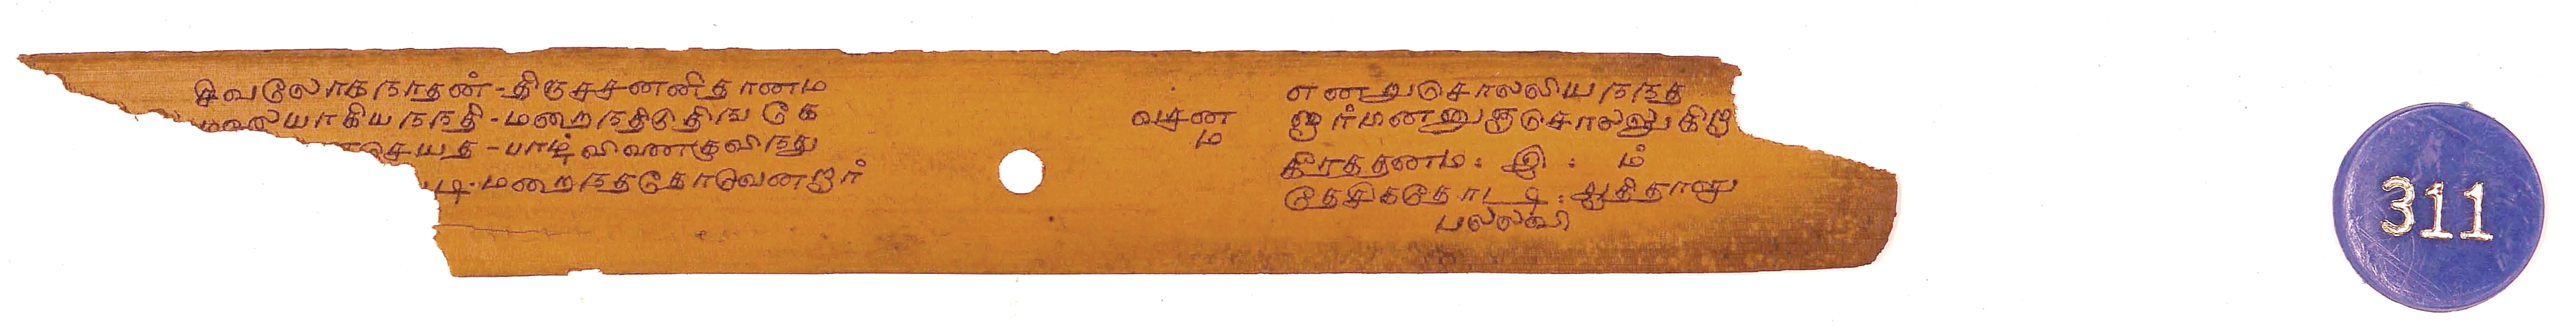 சிவலோகநாதன்-திருசசனனிதானம
மலையாகியநநதி-மறைநதிடுதிஙகே
செயத-பாழ்விணைகுவிநது
டி-மறைநததோவெனறார்
எனறுசொலலியநநத
வசன
ம
ஞர்மனறுகுசொலலுகிற
கீரததனம: இ: ம்
தேசிகதோடடி: ஆதிதாளு
பலலவி
311